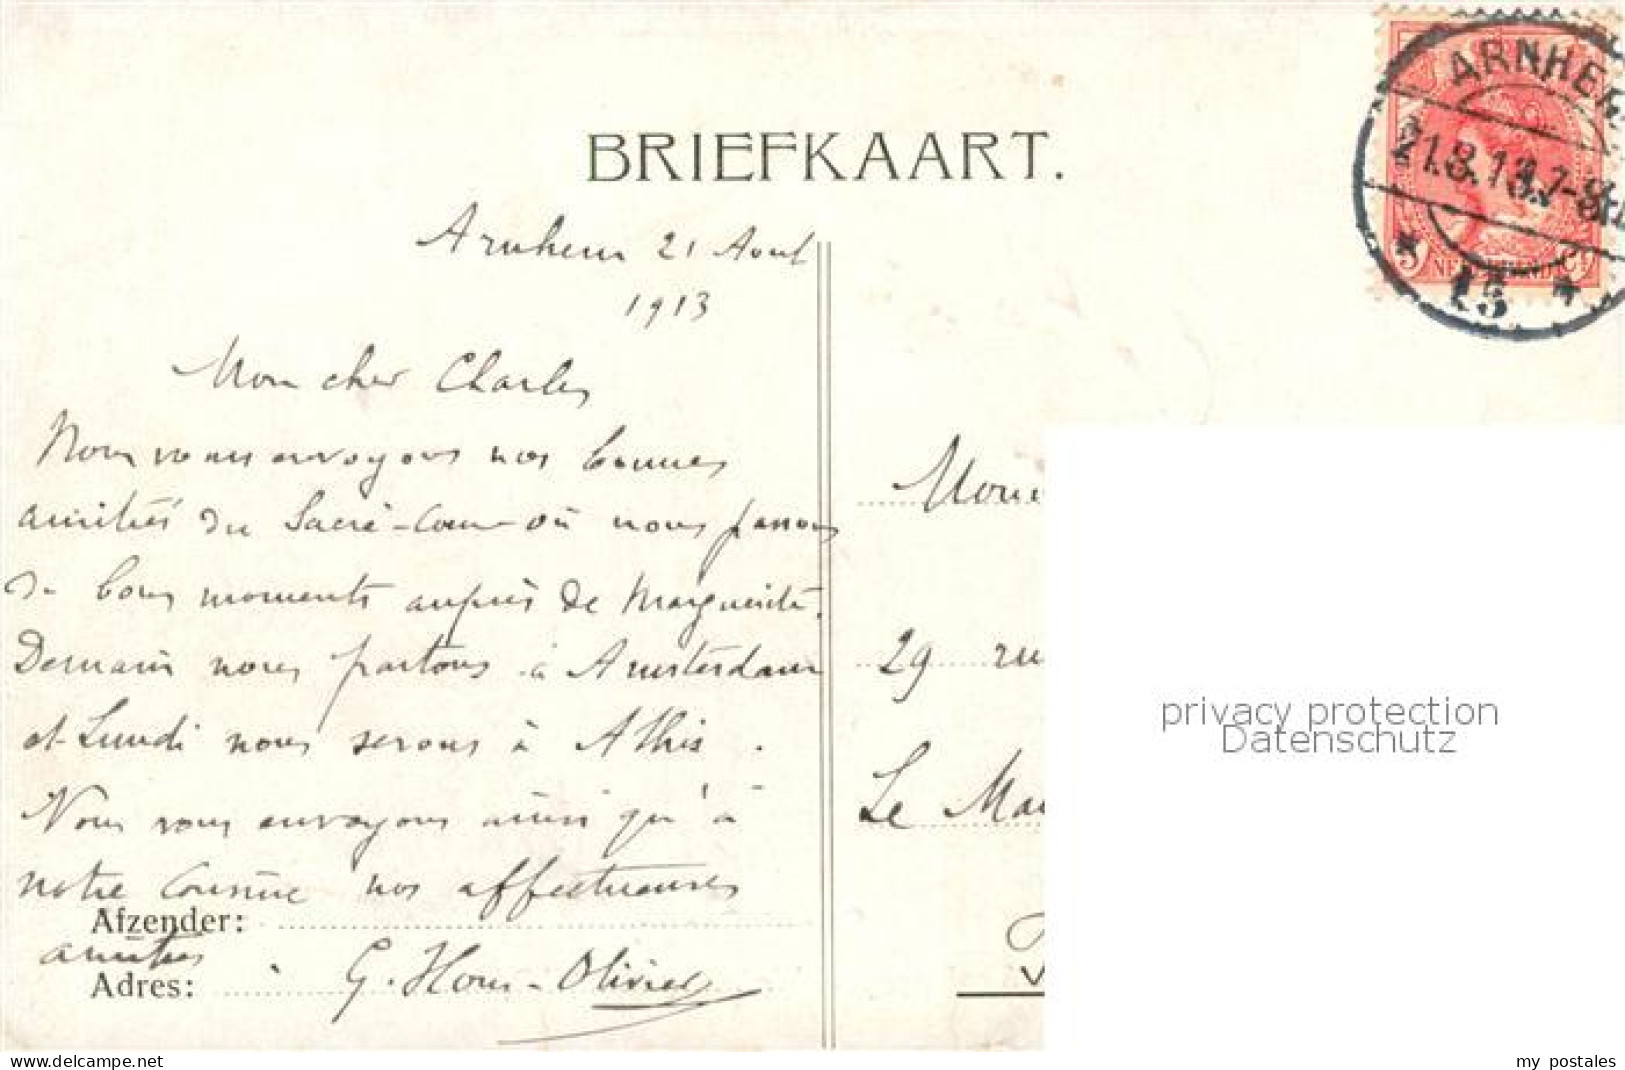 BRIEFKAART.
ARNHEM
21.8.13.7-8
15
5 NEDERLAND Ct
Arnhem 21 Aout
1913
Mon cher Charles
Nous vous envoyons nos bonnes
amitiés du Sacré-Coeur où nous passons
de bons moments auprès de Marguerite.
Demain nous partons à Amsterdam
et Lundi nous serons à Athis.
Nous vous envoyons ainsi qu'à
notre Cousine nos affectueuses
amitiés
Afzender:
Adres:
G. Hons-Olivier
Mons
29 ru
Le Ma
privacy protection
Datenschutz
my postales